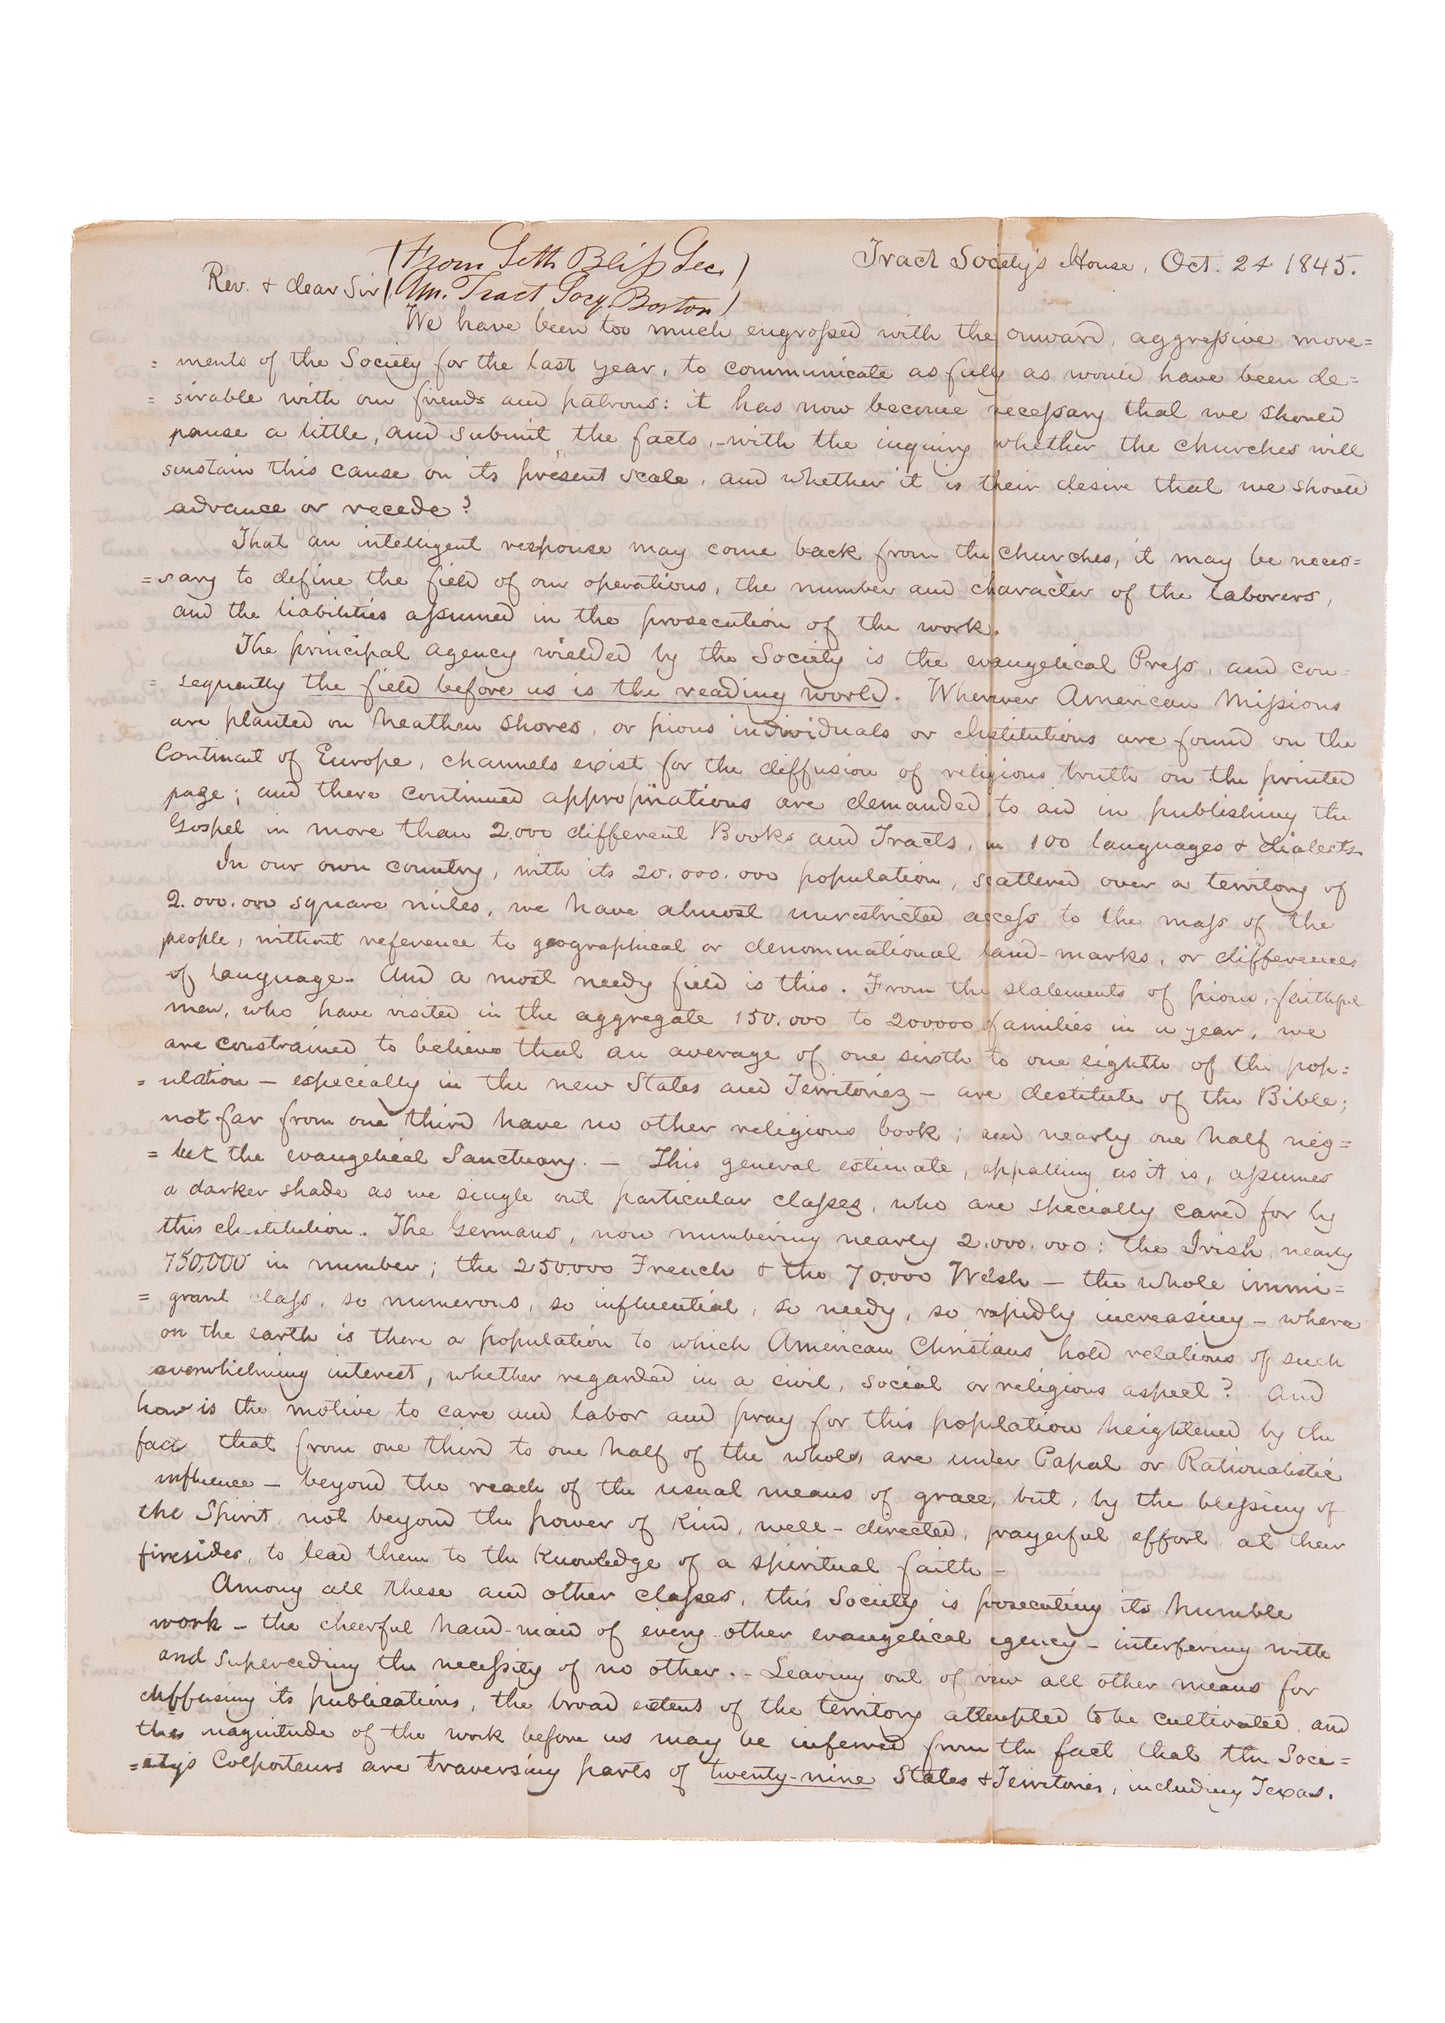 (From Seth Bliss Sec.)
Tract Society's House, Oct. 24 1845.
Rev. & dear Sir (Am. Tract Socy. Boston)
We have been too much engrossed with the onward, aggressive move=
= ments of the Society for the last year, to communicate as fully as would have been de=
= sirable with our friends and patrons: it has now become necessary that we should
pause a little, and submit the facts, - with the inquiry whether the churches will
sustain this cause on its present scale, and whether it is their desire that we should
advance or recede?
That an intelligent response may come back from the churches, it may be neces=
= sary to define the field of our operations, the number and character of the laborers,
and the liabilities assumed in the prosecution of the work.
The principal agency wielded by the Society is the evangelical Press, and con=
= sequently the field before us is the reading world. Wherever American Missions
are planted on heathen shores, or pious individuals or Institutions are found on the
Continent of Europe, channels exist for the diffusion of religious truth on the printed
page; and there continued appropriations are demanded to aid in publishing the
Gospel in more than 2.000 different Books and Tracts, in 100 languages & dialects.
In our own country, with its 20.000.000 population, scattered over a territory of
2.000.000 square miles, we have almost unrestricted access to the mass of the
people, without reference to geographical or denominational land-marks, or differences
of language. And a most needy field is this. From the statements of pious, faithful
men, who have visited in the aggregate 150.000 to 200000 families in a year, we
are constrained to believe that an average of one sixth to one eighth of the pop=
= ulation - especially in the new States and Territories - are destitute of the Bible;
not far from one third have no other religious book; and nearly one half neg=
= lect the evangelical Sanctuary. - This general estimate, appalling as it is, assumes
a darker shade as we single out particular classes, who are specially cared for by
this Institution. The Germans, now numbering nearly 2.000.000: the Irish, nearly
750,000 in number; the 250.000 French & the 70.000 Welsh - the whole immi=
= grant class, so numerous, so influential, so needy, so rapidly increasing - where
on the earth is there a population to which American Christians hold relations of such
overwhelming interest, whether regarded in a civil, social or religious aspect? And
how is the motive to care and labor and pray for this population heightened by the
fact that from one third to one half of the whole, are under Papal or Rationalistic
influence - beyond the reach of the usual means of grace, but, by the blessing of
the Spirit, not beyond the power of kind, well-directed, prayerful effort at their
firesides, to lead them to the knowledge of a spiritual faith -
Among all these and other classes, this Society is prosecuting its humble
work - the cheerful hand-maid of every other evangelical agency - interfering with
and superceding the necessity of no other. - Leaving out of view all other means for
diffusing its publications, the broad extent of the territory attempted to be cultivated, and
the magnitude of the work before us may be inferred from the fact that the Soci=
= ety's Colporteurs are traversing parts of twenty-nine States & Territories, including Texas.